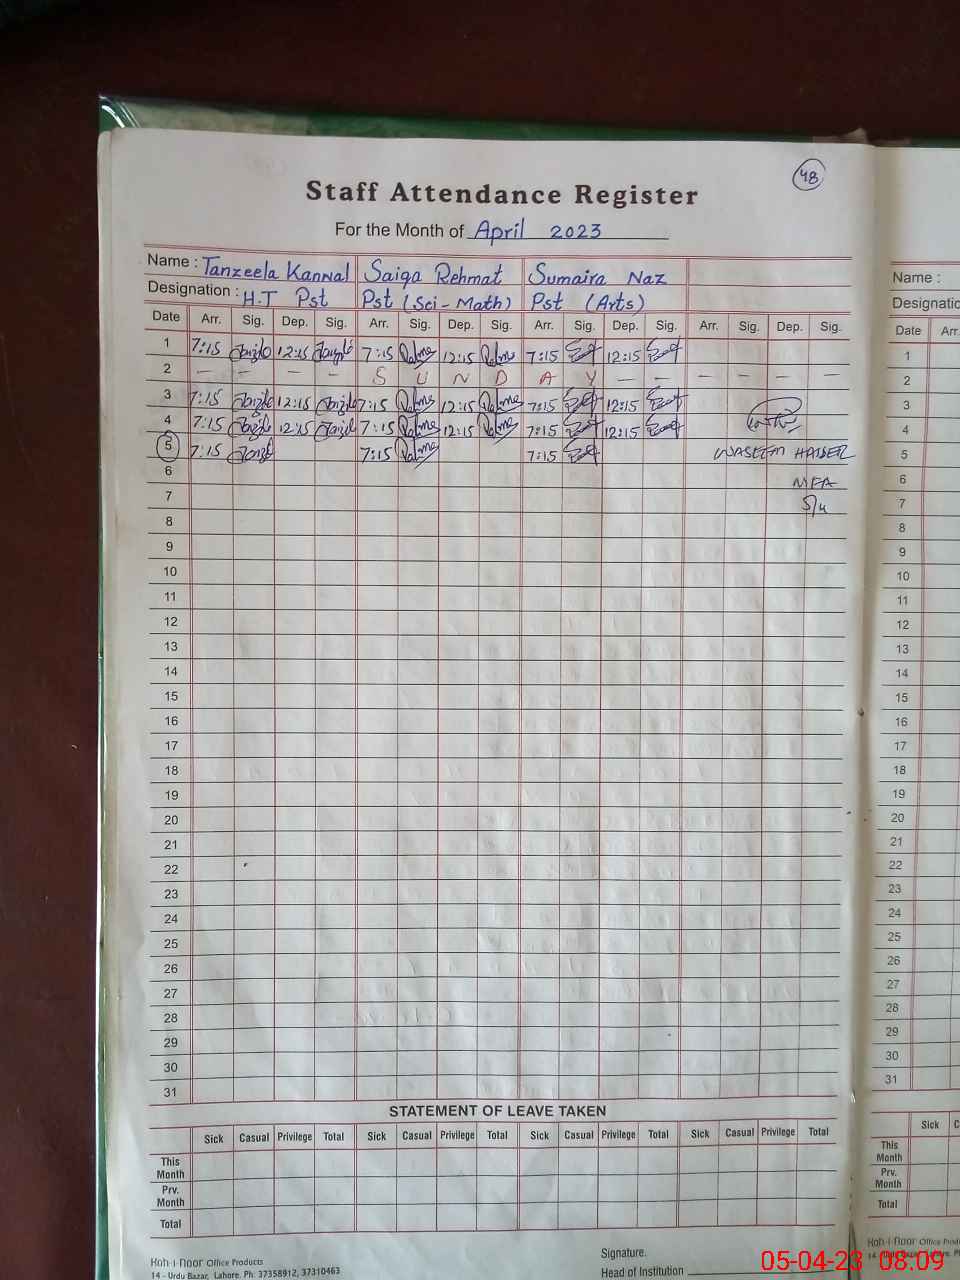 48
Staff Attendance Register
For the Month of April 2023
Name : Tanzeela Kanwal Saiqa Rehmat Sumaira Naz
Designation : H.T Pst Pst (Sci - Math) Pst (Arts)
Date Arr. Sig. Dep. Sig. Arr. Sig. Dep. Sig. Arr. Sig. Dep. Sig. Arr. Sig. Dep. Sig.
1 7:15 12:15 7:15 12:15 7:15 12:15
2 — — — — S U N D A Y — — — — — —
3 7:15 12:15 7:15 12:15 7:15 12:15
4 7:15 12:15 7:15 12:15 7:15 12:15
5 7:15 7:15 7:15 WASEEM HAIDER
6 MEA
7
8
9
10
11
12
13
14
15
16
17
18
19
20
21
22
23
24
25
26
27
28
29
30
31
STATEMENT OF LEAVE TAKEN
Sick Casual Privilege Total Sick Casual Privilege Total Sick Casual Privilege Total Sick Casual Privilege Total
This Month
Prv. Month
Total
Koh-i-Noor Office Products
14 - Urdu Bazar, Lahore. Ph: 37358912, 37310463
Signature.
Head of Institution
Name :
Designatio
Date Arr.
1
2
3
4
5
6
7
8
9
10
11
12
13
14
15
16
17
18
19
20
21
22
23
24
25
26
27
28
29
30
31
Sick C
This Month
Prv. Month
Total
Koh-i-Noor Office Produ
14 - Urdu Bazar, Lahore. Ph
05-04-23 08.09